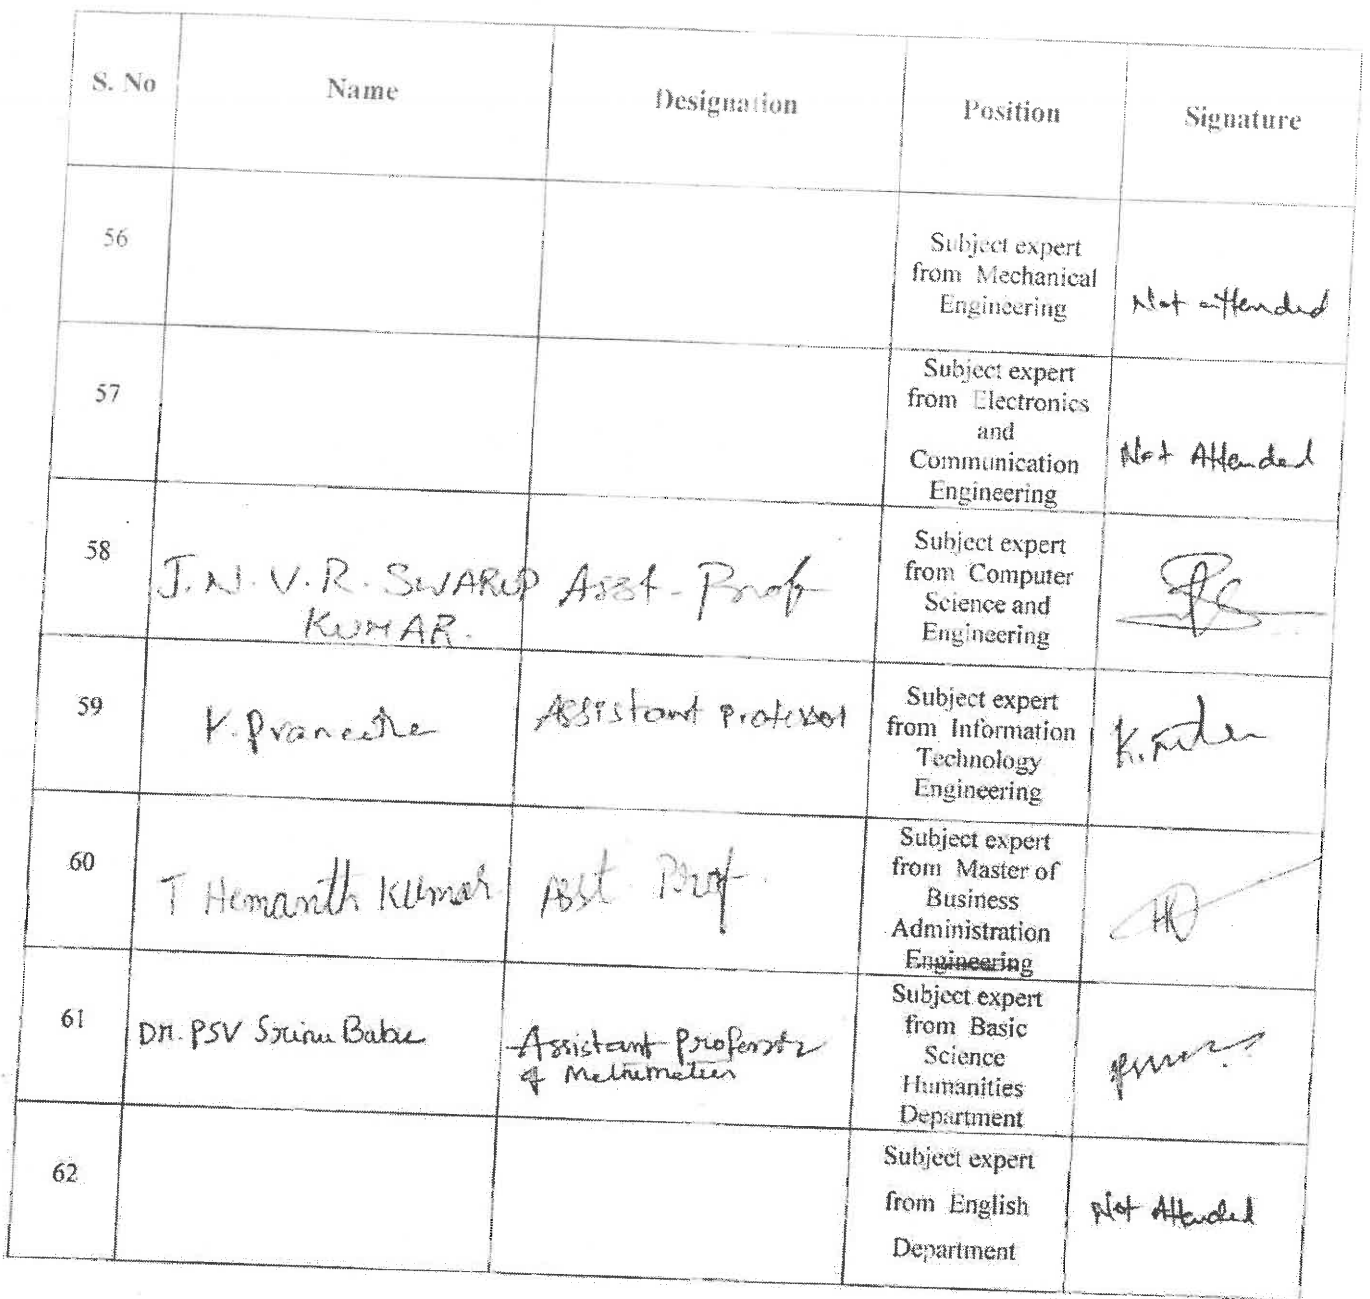 S. No Name Designation Position Signature
56
Subject expert
from Mechanical
Engineering
Not attended
57
Subject expert
from Electronics
and
Communication
Engineering
Not Attended
58
J.N.V.R. SWARUP
KUMAR.
Asst. Prof
Subject expert
from Computer
Science and
Engineering
59
K. Praneetha
Assistant Professor
Subject expert
from Information
Technology
Engineering
K.
60
T Hemanth Kumar
Asst Prof.
Subject expert
from Master of
Business
Administration
Engineering
61
Dr. PSV Srinu Babu
Assistant Professor
of Mathematics
Subject expert
from Basic
Science
Humanities
Department
62
Subject expert
from English
Department
Not Attended